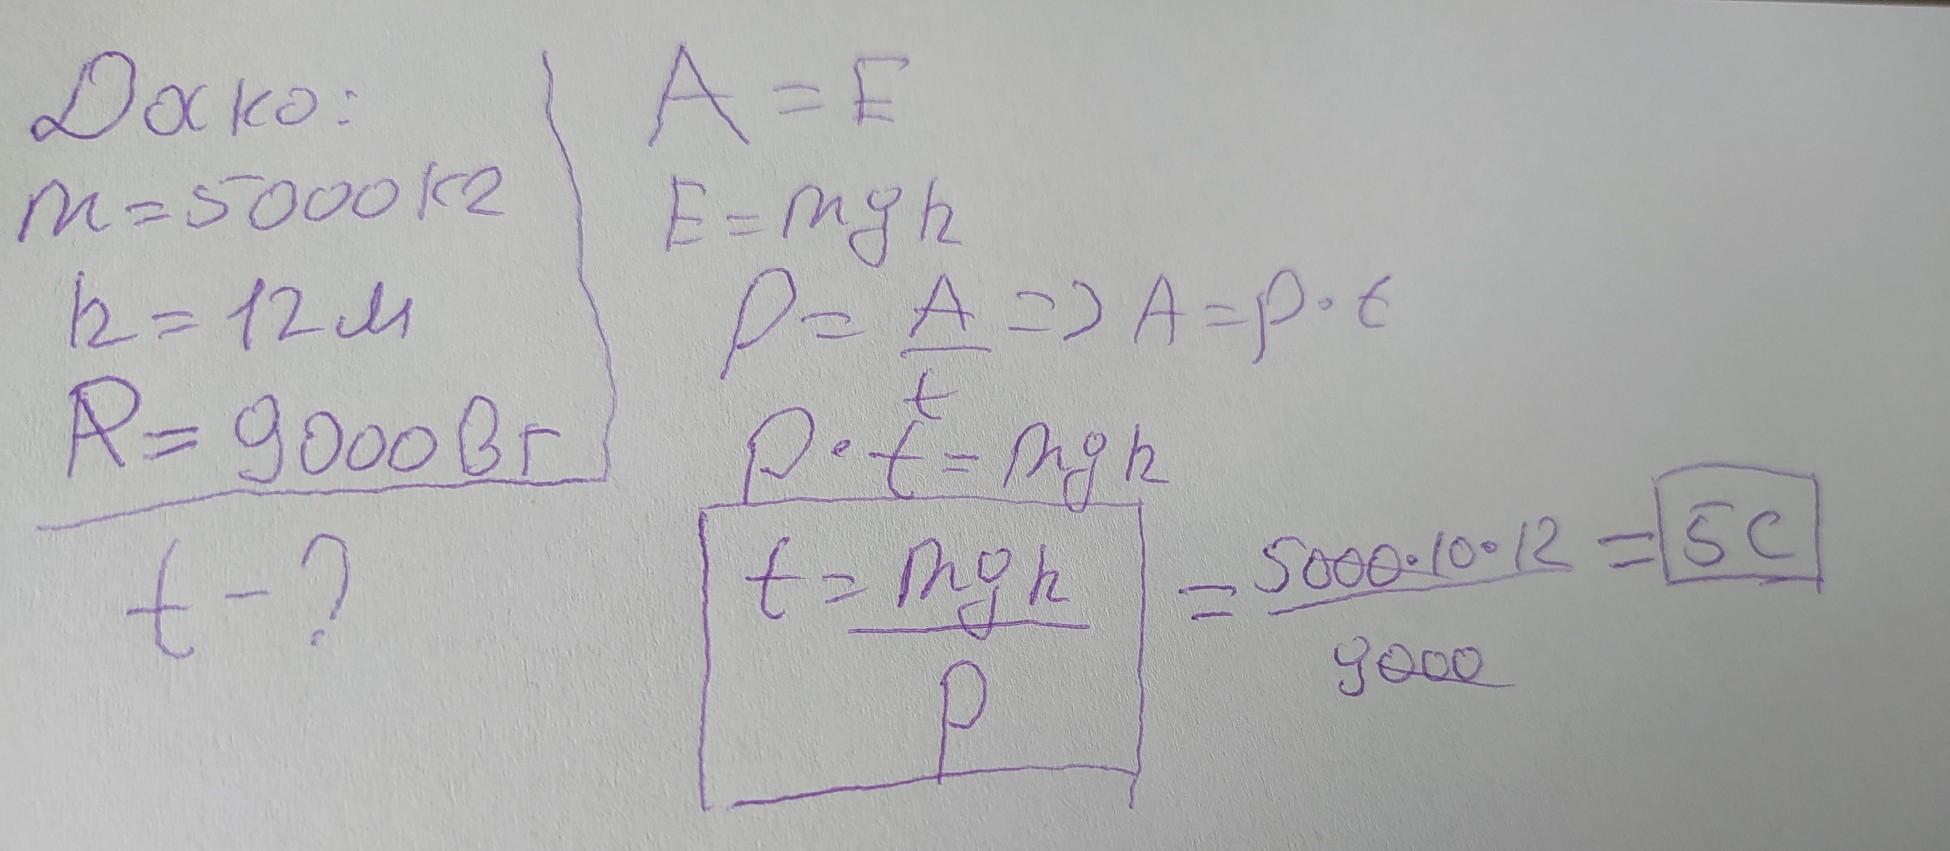 Дако:
m=5000кг
h=12м
P=9000Вт
t-?
A=E
E=mgh
P=A/t=>A=P·t
P·t=mgh
t=mgh/P=5000·10·12/9000=5с